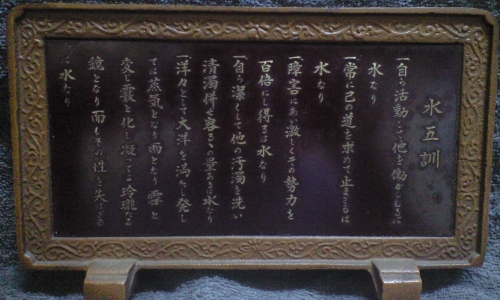 水五訓
一自ら活動して他を働かしむるは
水なり
一常に己の道を求めて止まざるは
水なり
一障害にあい激しくその勢力を
百倍し得るは水なり
一自ら潔うして他の汚濁を洗い
清濁併せ容るゝの量あるは水なり
一洋々として大洋を満たし発し
ては蒸気となり雨となり雪と
変し霰と化し凝っては玲瓏たる
鏡となり而もその性を失はざる
は水なり